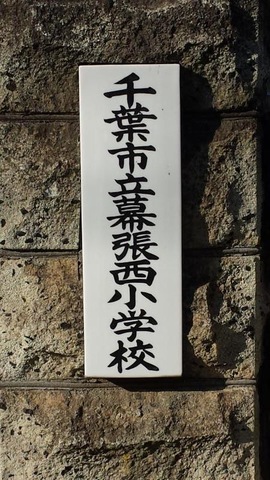 千葉市立幕張西小学校